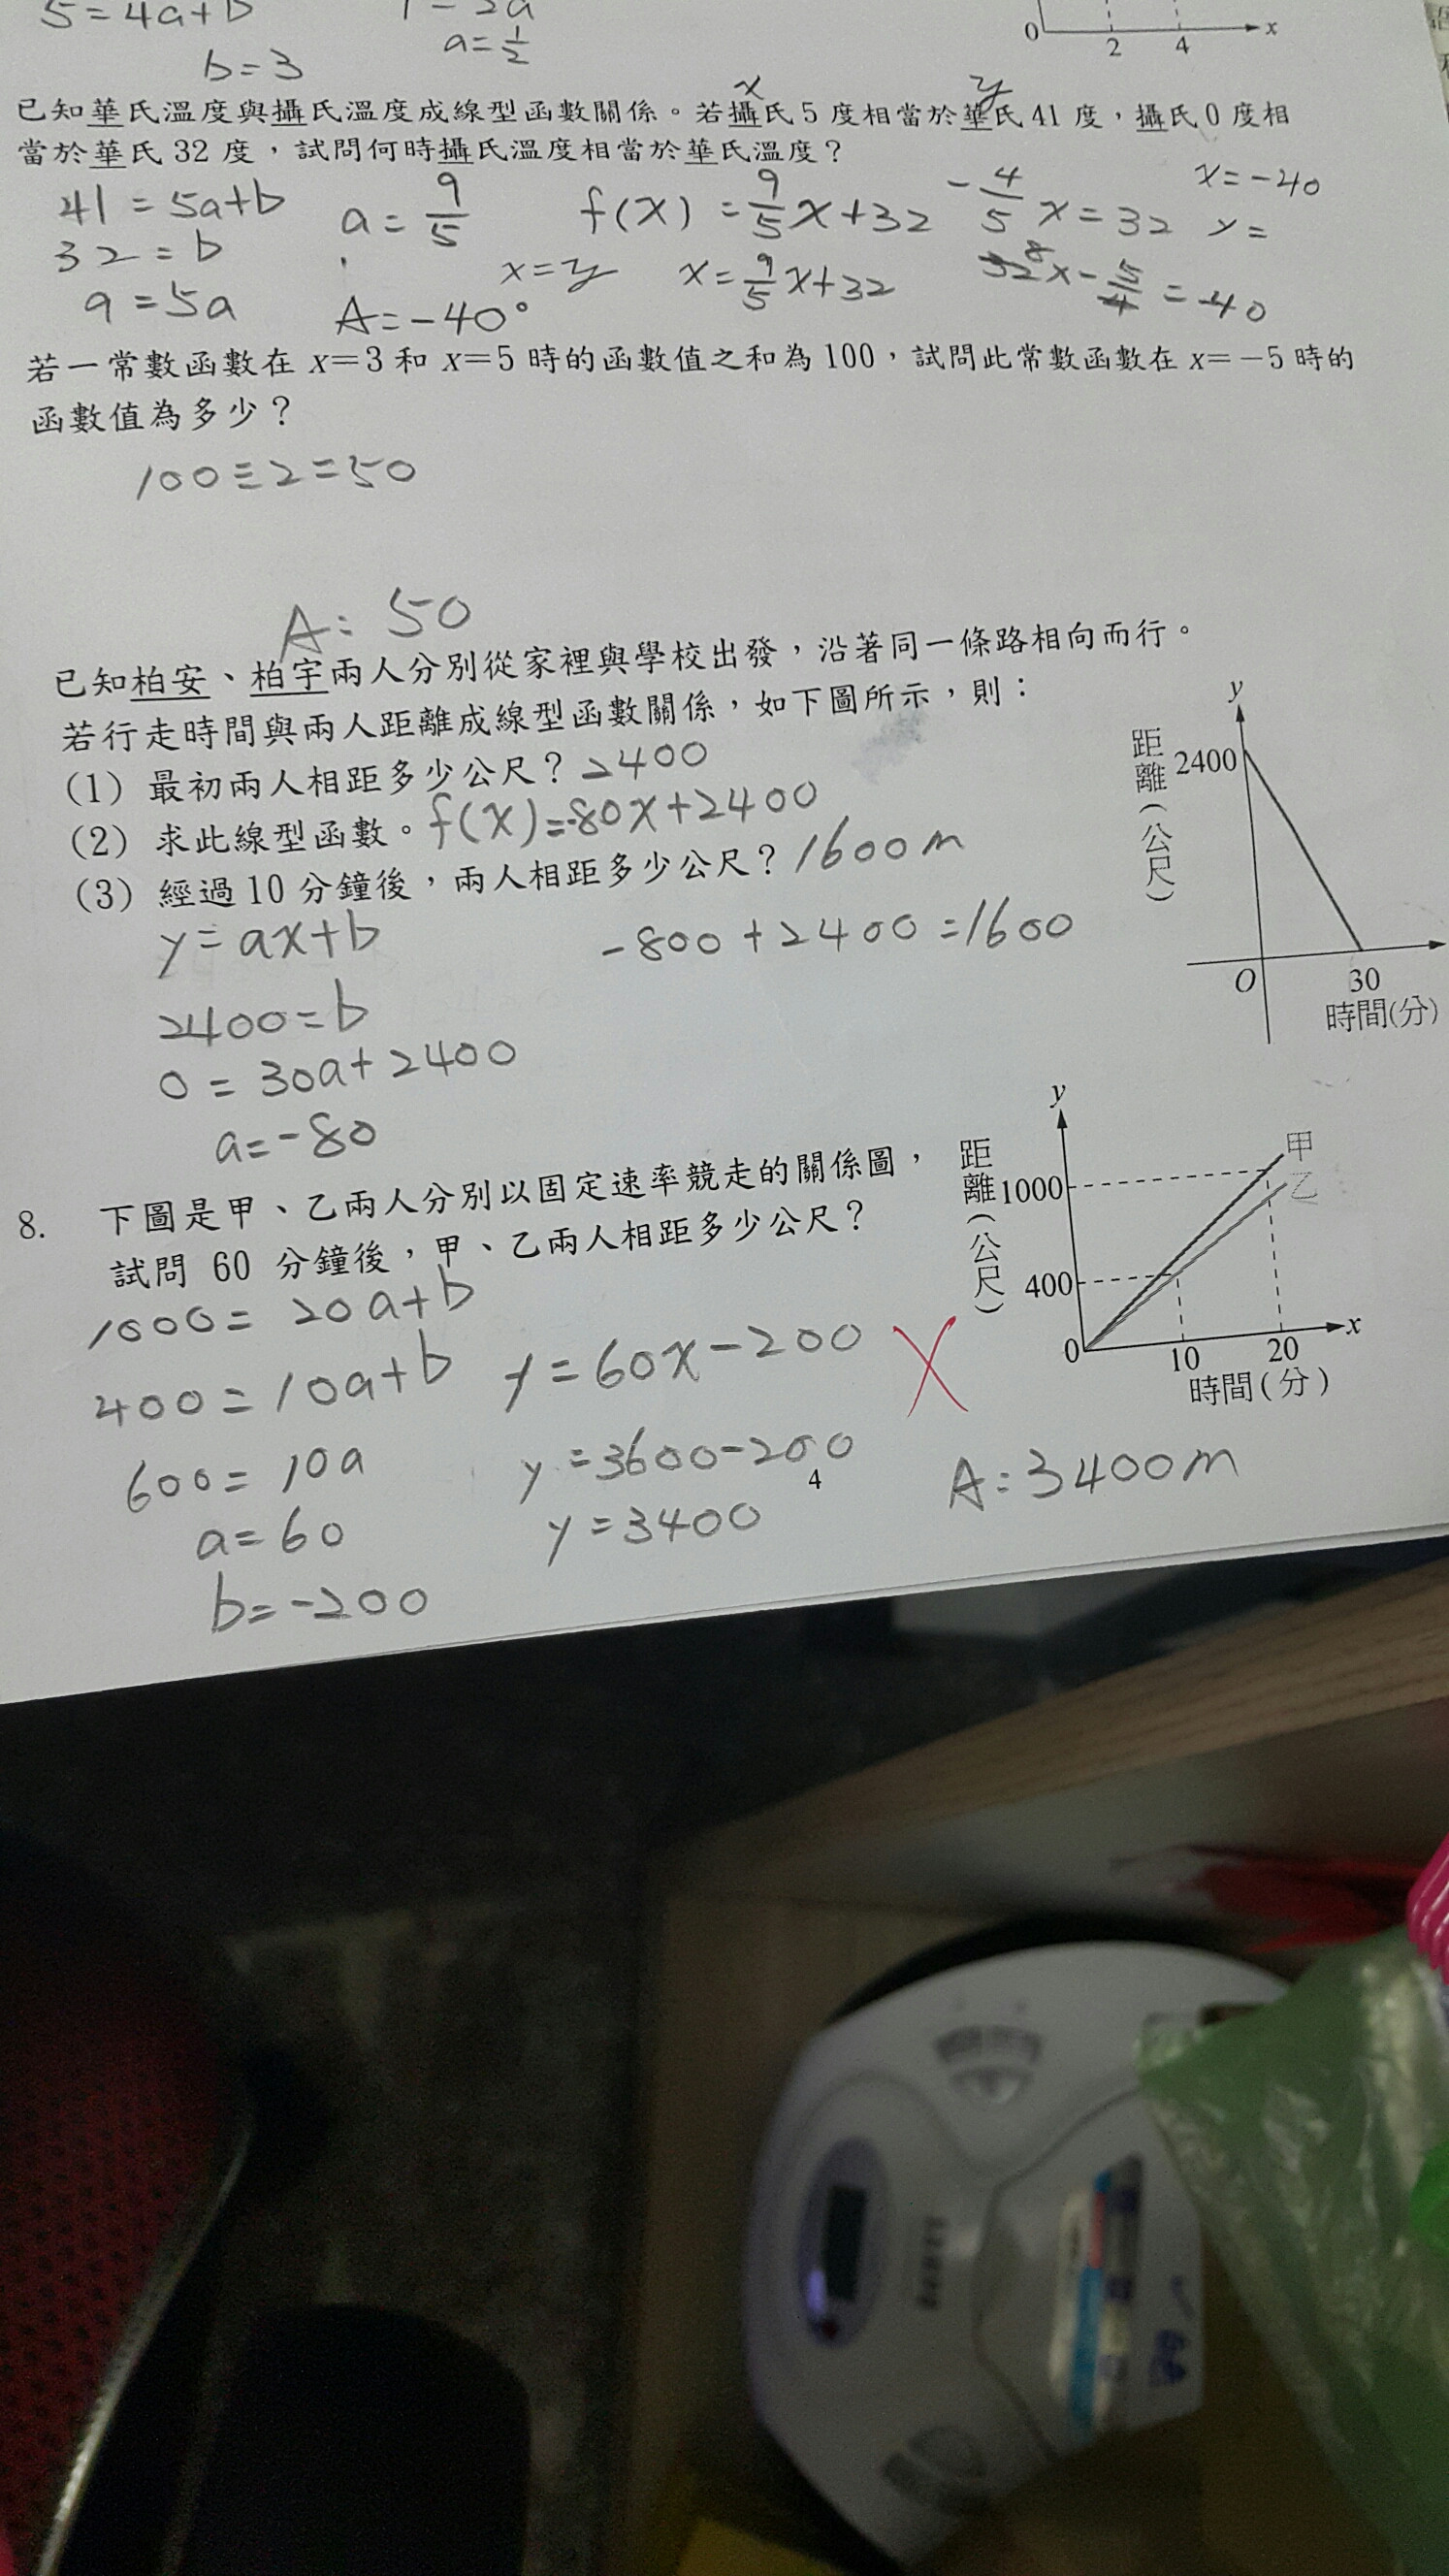 5=4a+b
a=1/2
b=3
0 2 4 x
x y
已知華氏溫度與攝氏溫度成線型函數關係。若攝氏5度相當於華氏41度,攝氏0度相
當於華氏32度,試問何時攝氏溫度相當於華氏溫度?
41=5a+b
32=b
9=5a
a=9/5
f(x)=9/5x+32
x=y
x=9/5x+32
-4/5x=32
x=-40
y=
A=-40°
若一常數函數在 x=3 和 x=5 時的函數值之和為100,試問此常數函數在 x=-5 時的
函數值為多少?
100÷2=50
A: 50
已知柏安、柏宇兩人分別從家裡與學校出發,沿著同一條路相向而行。
若行走時間與兩人距離成線型函數關係,如下圖所示,則:
(1) 最初兩人相距多少公尺? 2400
(2) 求此線型函數。f(x)=-80x+2400
(3) 經過10分鐘後,兩人相距多少公尺? 1600m
y=ax+b
-800+2400=1600
2400=b
0=30a+2400
a=-80
y
距離(公尺)
2400
O 30
時間(分)
8. 下圖是甲、乙兩人分別以固定速率競走的關係圖,
試問 60 分鐘後,甲、乙兩人相距多少公尺?
1000=20a+b
400=10a+b
600=10a
a=60
b=-200
y=60x-200
y=3600-200
y=3400
A:3400m
y
距離(公尺)
甲
乙
1000
400
0 10 20 x
時間(分)
4